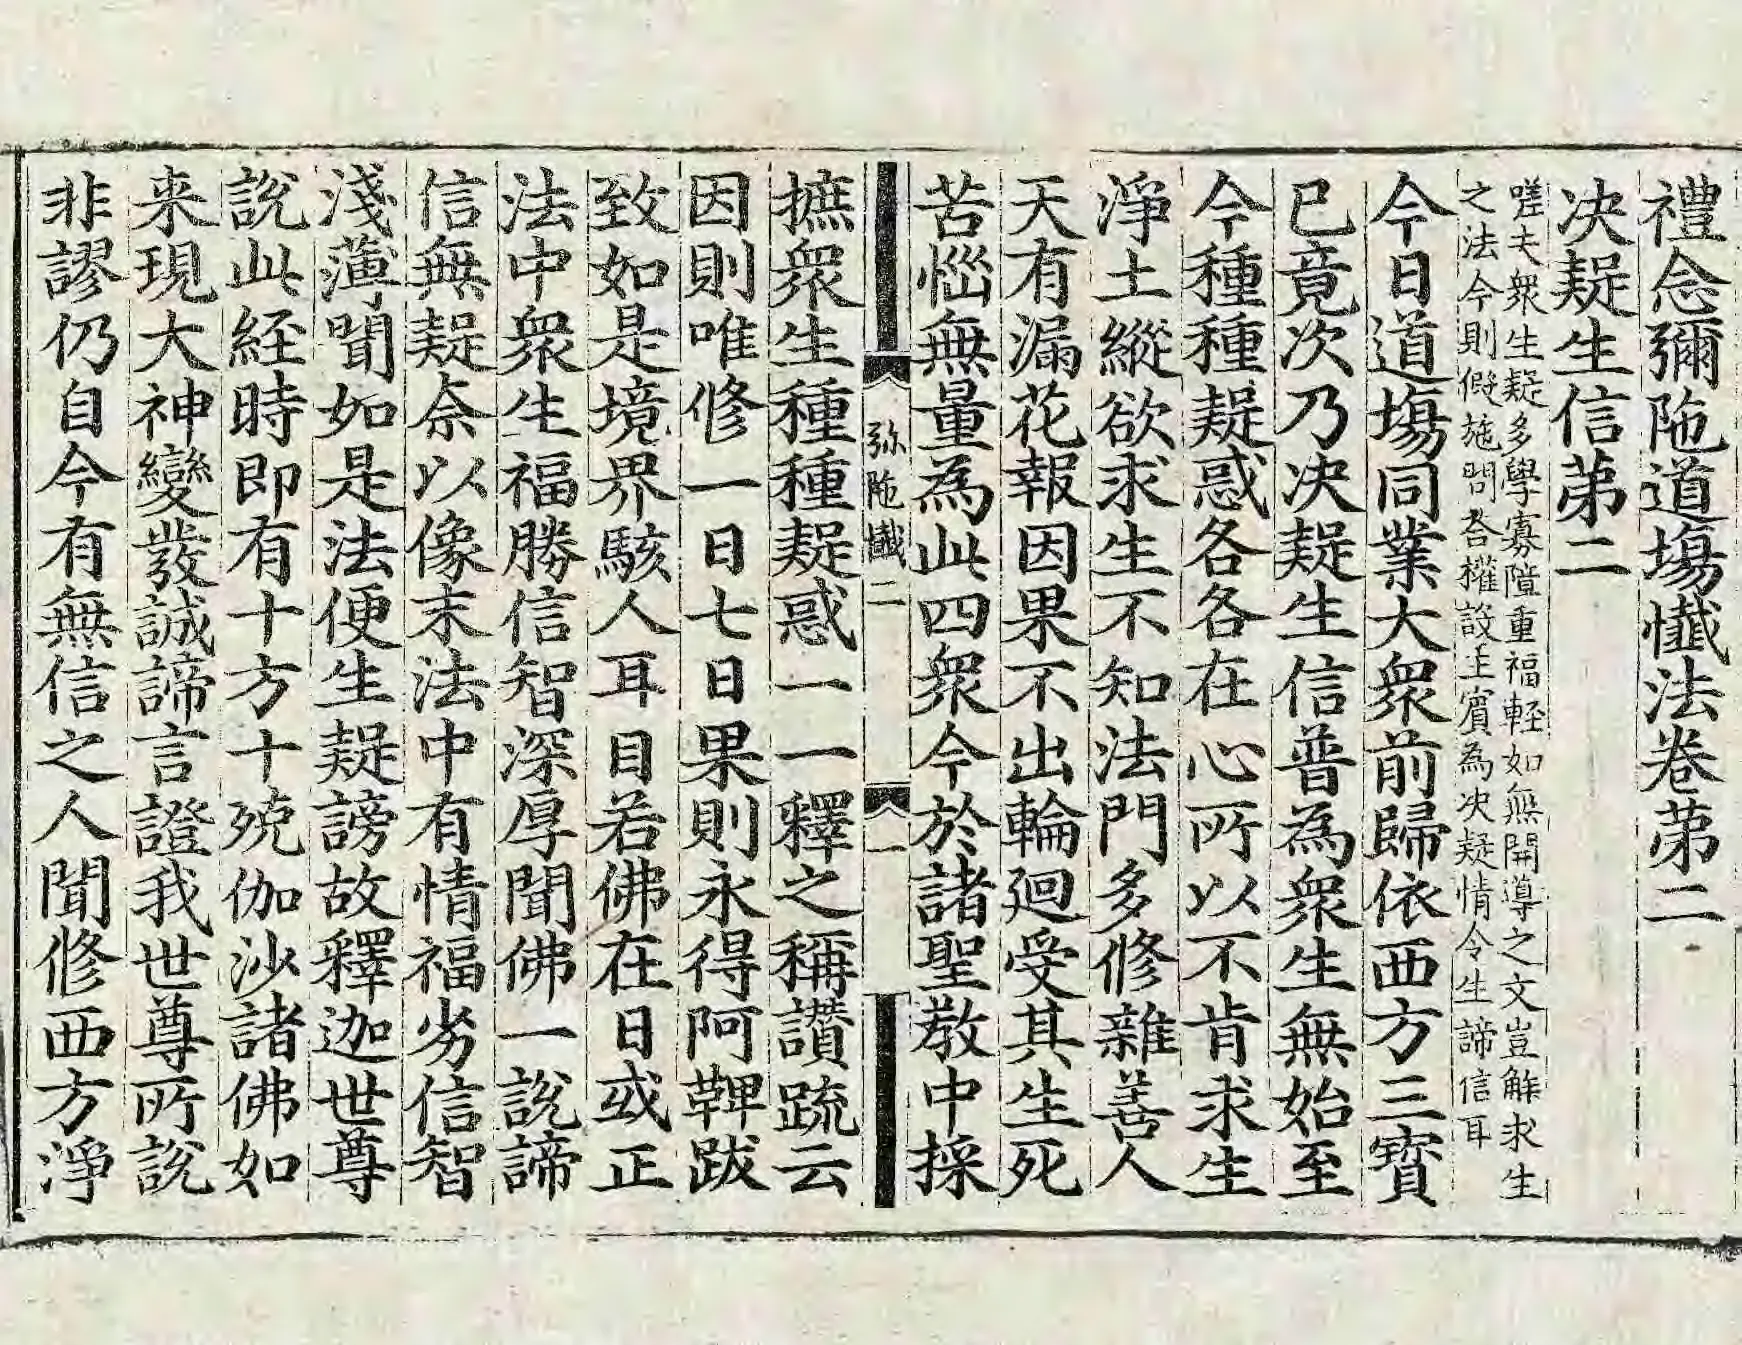 禮念彌陁道塲懺法卷苐二
决疑生信苐二
嗟夫衆生疑多學寡障重福輕如無開導之文豈解求生
之法今則假施問荅權設主賓為决疑情令生諦信耳
今日道塲同業大衆前歸依西方三寳
已竟次乃决疑生信普為衆生無始至
今種種疑惑各各在心所以不肯求生
淨土縱欲求生不知法門多修雜善人
天有漏花報因果不出輪廻受其生死
苦惱無量為此四衆今於諸聖教中採
弥陁懺二
一
摭衆生種種疑惑一一釋之稱讚疏云
因則唯修一日七日果則永得阿鞞跋
致如是境界駭人耳目若佛在日或正
法中衆生福勝信智深厚聞佛一說諦
信無疑奈以像末法中有情福劣信智
淺薄聞如是法便生疑謗故釋迦世尊
說此経時即有十方十殑伽沙諸佛如
来現大神變發誠諦言證我世尊所說
非謬仍自今有無信之人聞修西方淨